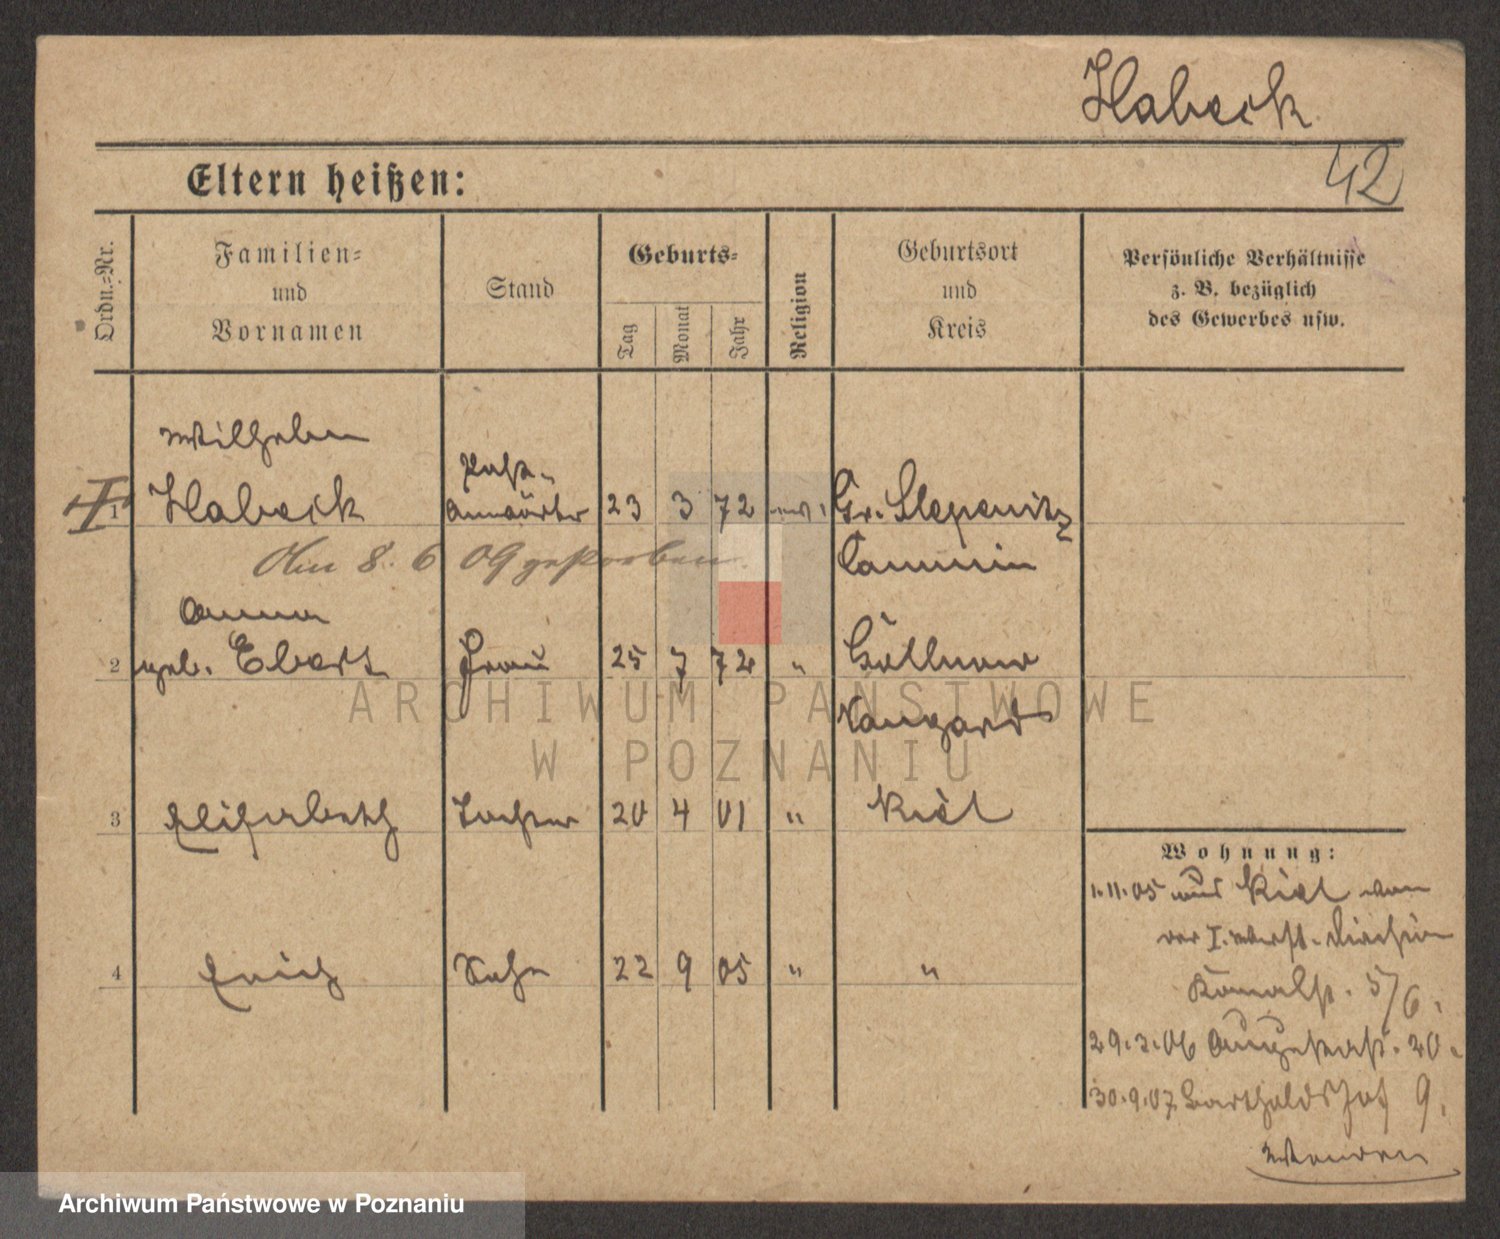 Habeck
42
Eltern heißen:
Ordn.-Nr.
Familien-
und
Vornamen
Stand
Geburts-
Tag
Monat
Jahr
Religion
Geburtsort
und
Kreis
Persönliche Verhältnisse
z. B. bezüglich
des Gewerbes usw.
Wilhelm
1 Habeck Post-
anwärter 23 3 72 ev. Gr. Stepenitz
Am 8. 6 09 gestorben. Cammin
Anna
2 geb. Ebert Frau 25 7 72 " Gollnow
Naugard
3 Elisabeth Tochter 20 4 01 " Kiel
4 Erich Sohn 22 9 05 " "
Wohnung:
1.11.05 aus Kiel von
der I. Werft-Division
Kanalst. 5/6.
29.3.06 Augustast. 20.
30.9.07 Bartholdshof 9.
Wenden
ARCHIWUM PAŃSTWOWE
W POZNANIU
Archiwum Państwowe w Poznaniu